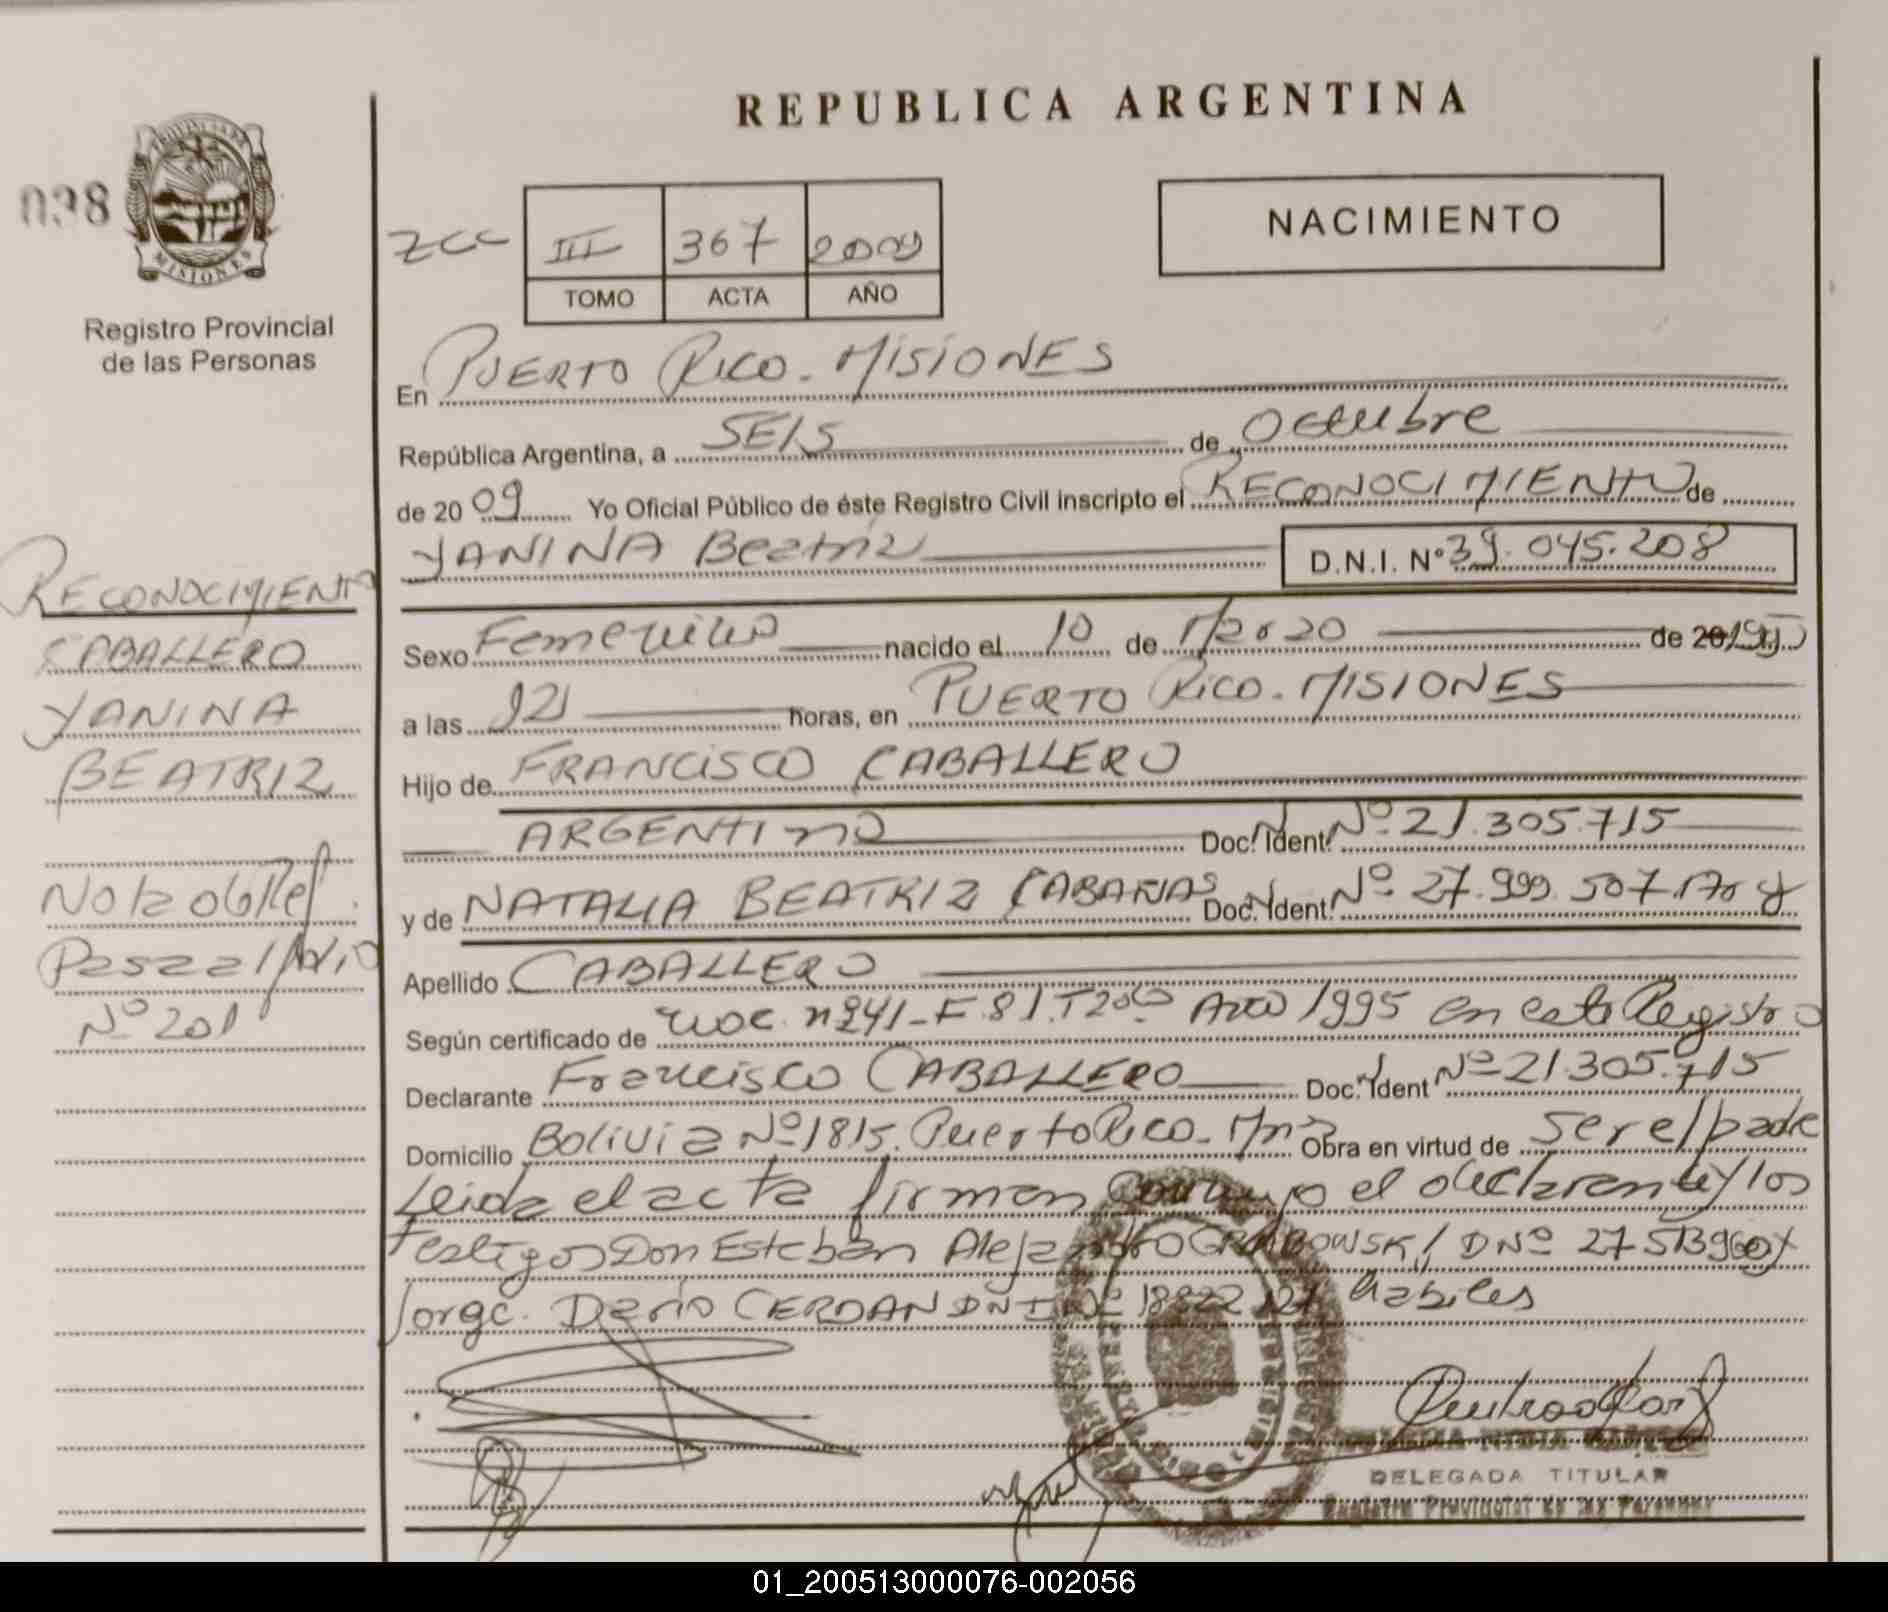 REPUBLICA ARGENTINA
038
MISIONES
Registro Provincial
de las Personas
III 367 2009
TOMO ACTA AÑO
NACIMIENTO
En PUERTO RICO. MISIONES
República Argentina, a SEIS de Octubre
de 2009 Yo Oficial Público de éste Registro Civil inscripto el RECONOCIMIENTO de
YANINA Beatriz D.N.I. Nº 39.045.208
Sexo Femenino nacido el 10 de de 1995
a las 12 horas, en PUERTO RICO. MISIONES
Hijo de FRANCISCO CABALLERO
ARGENTINO Doc. Ident. Nº 21.305.715
y de NATALIA BEATRIZ CABAÑAS Doc. Ident. Nº 27.999.507
Apellido CABALLERO
Según certificado de Año 1995 en este Registro
Declarante Francisco CABALLERO Doc. Ident Nº 21.305.715
Domicilio Bolivia Nº 1815. Puerto Rico. Mnes Obra en virtud de ser el padre
Leida el acta firman conmigo el declarante y los
testigos Don Esteban Alejandro GRABOWSKI DNº
Jorge Dario CERDAN DNI Nº habiles
DELEGADA TITULAR
Registro Provincial de las Personas
RECONOCIMIENTO
CABALLERO
YANINA
BEATRIZ
Nota de Ref.
Pasa al folio
Nº 201
01_200513000076-002056